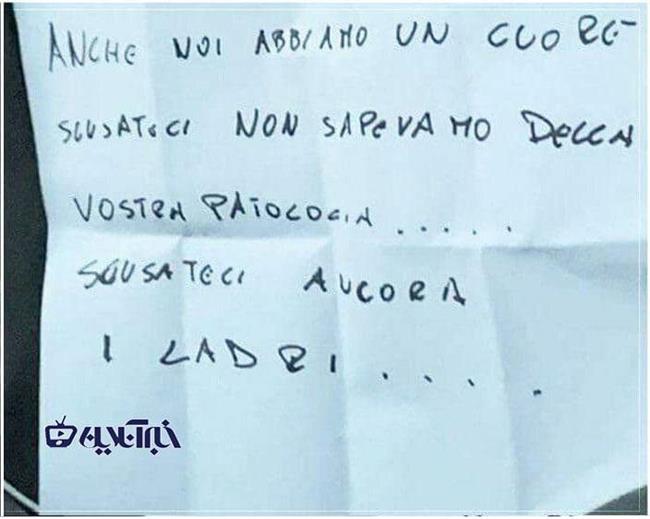 ANCHE NOI ABBIAMO UN CUORE
SCUSATECI NON SAPEVAMO DELLA
VOSTRA PATOLOGIA . . . . .
SCUSATECI ANCORA
I LADRI . . . .
خبرآنلاین